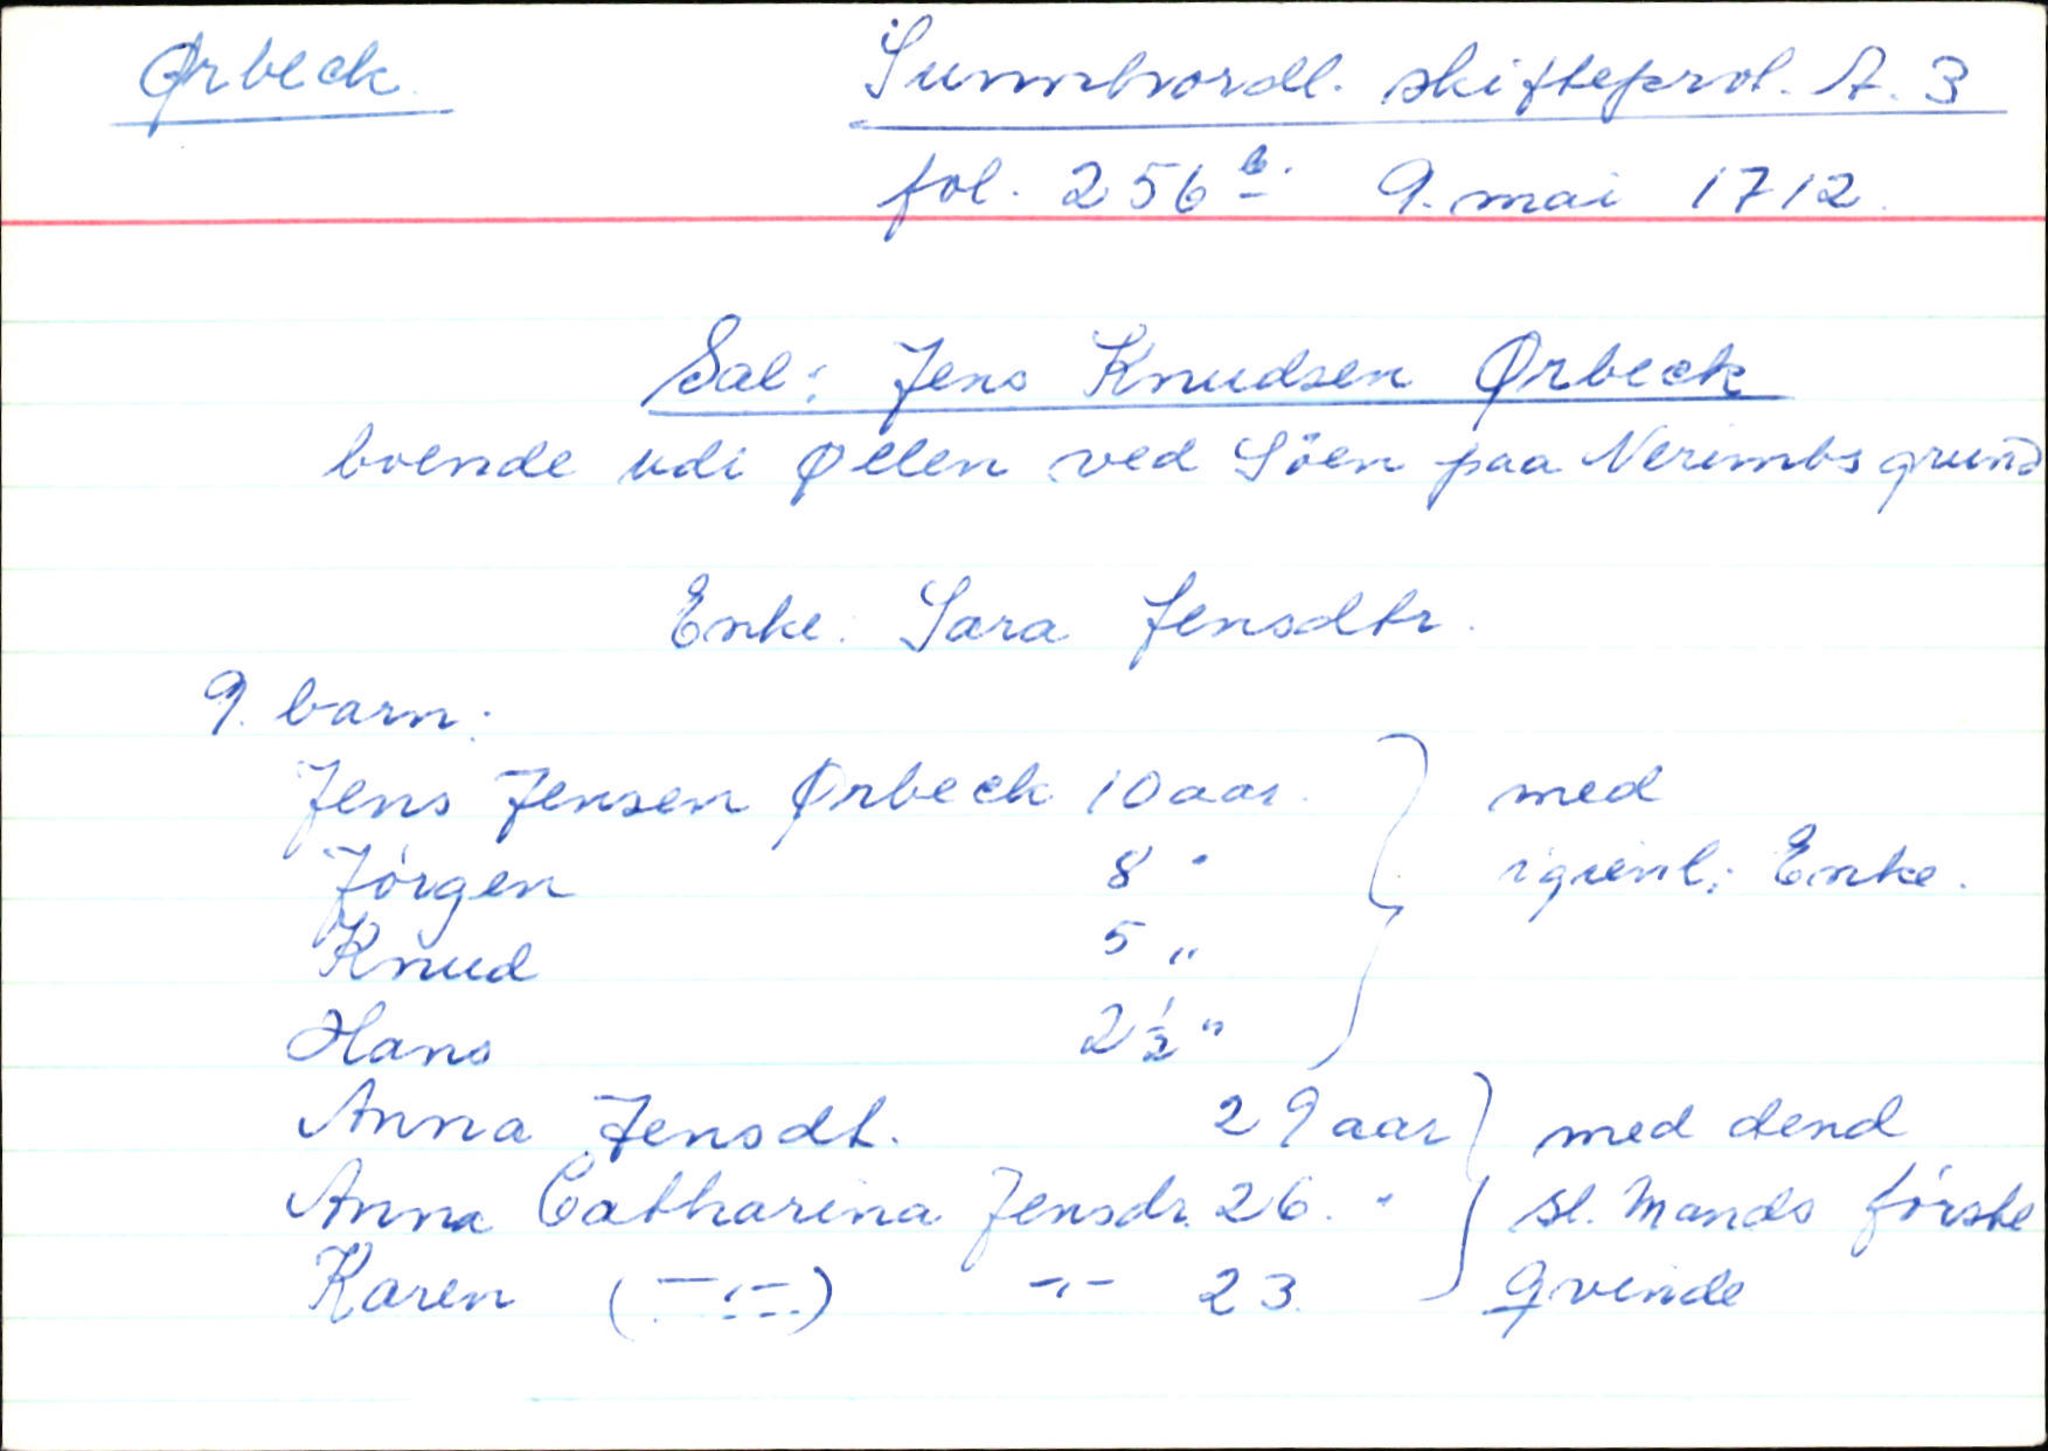 Ørbeck. Sunnhordl. skifteprot. A. 3
fol. 256 b. 9. mai 1712.
Sal: Jens Knudsen Ørbeck
boende udi Øelen ved Söen paa Nerimbs grund
Enke: Sara Jensdtr.
9. barn:
Jens Jensen Ørbeck 10 aar. med
Jörgen 8 " igienl: Enke.
Knud 5 "
Hans 2½ "
Anna Jensdt. 29 aar med dend
Anna Catharina Jensdr. 26. " Sl. Mands förste
Karen (—"—) —"— 23. Qvinde